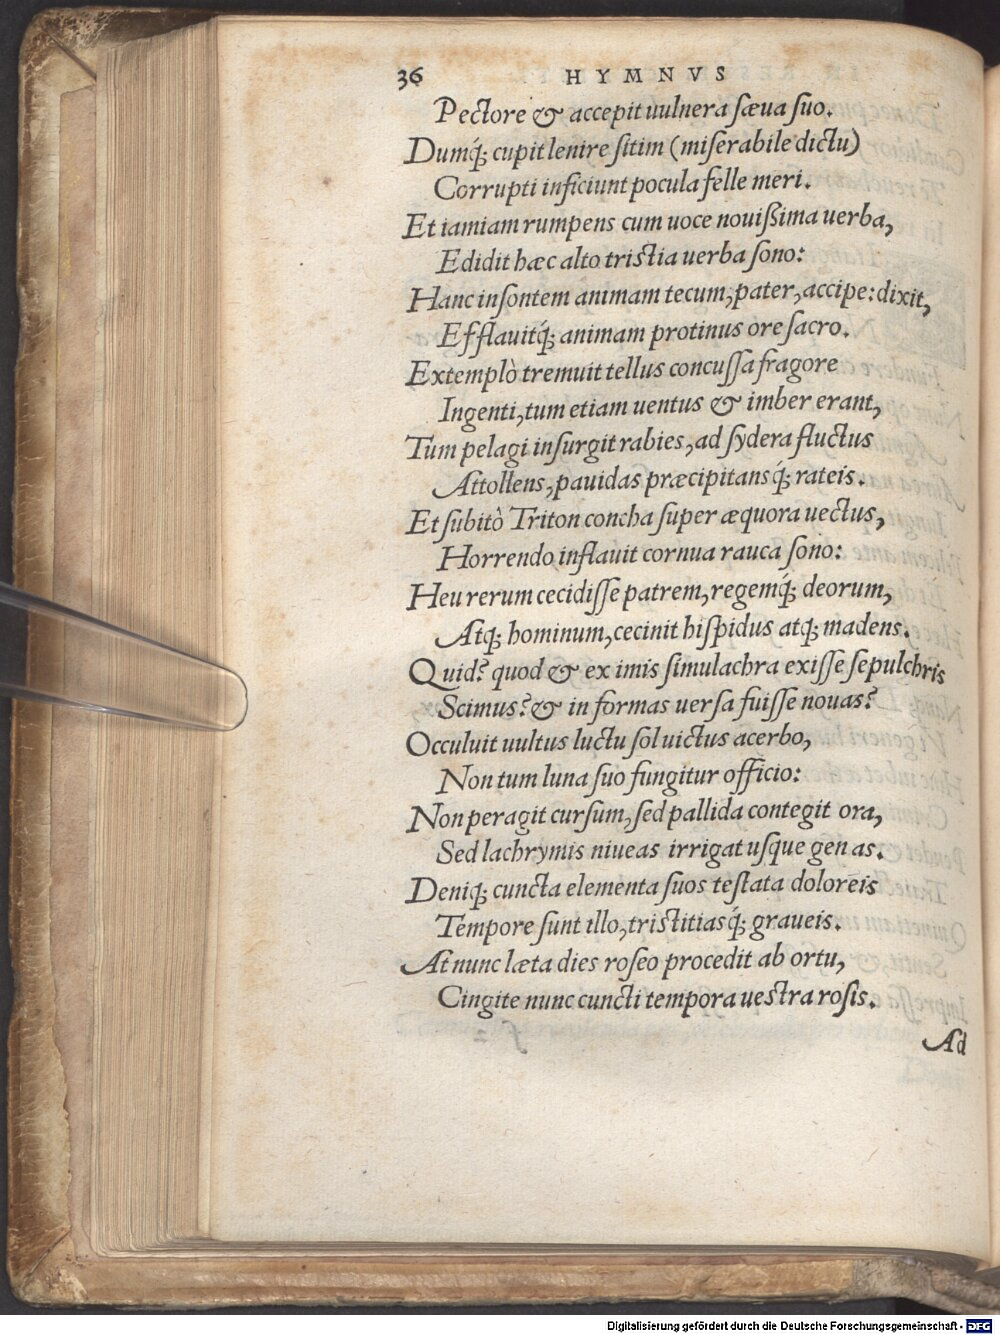 36 HYMNVS
Pectore & accepit uulnera sæua suo.
Dumq́; cupit lenire sitim (miserabile dictu)
Corrupti inficiunt pocula felle meri.
Et iamiam rumpens cum uoce nouißima uerba,
Edidit hæc alto tristia uerba sono:
Hanc insontem animam tecum, pater, accipe: dixit,
Efflauitq́; animam protinus ore sacro.
Extemplò tremuit tellus concussa fragore
Ingenti, tum etiam uentus & imber erant,
Tum pelagi insurgit rabies, ad sydera fluctus
Attollens, pauidas præcipitansq́; rateis.
Et subitò Triton concha super æquora uectus,
Horrendo inflauit cornua rauca sono:
Heu rerum cecidisse patrem, regemq́; deorum,
Atq; hominum, cecinit hispidus atq; madens.
Quid? quod & ex imis simulachra exisse sepulchris
Scimus? & in formas uersa fuisse nouas?
Occuluit uultus luctu sol uictus acerbo,
Non tum luna suo fungitur officio:
Non peragit cursum, sed pallida contegit ora,
Sed lachrymis niueas irrigat usque genas.
Deniq; cuncta elementa suos testata doloreis
Tempore sunt illo, tristitiasq́; graueis.
At nunc læta dies roseo procedit ab ortu,
Cingite nunc cuncti tempora uestra rosis.
Ad
Digitalisierung gefördert durch die Deutsche Forschungsgemeinschaft - DFG